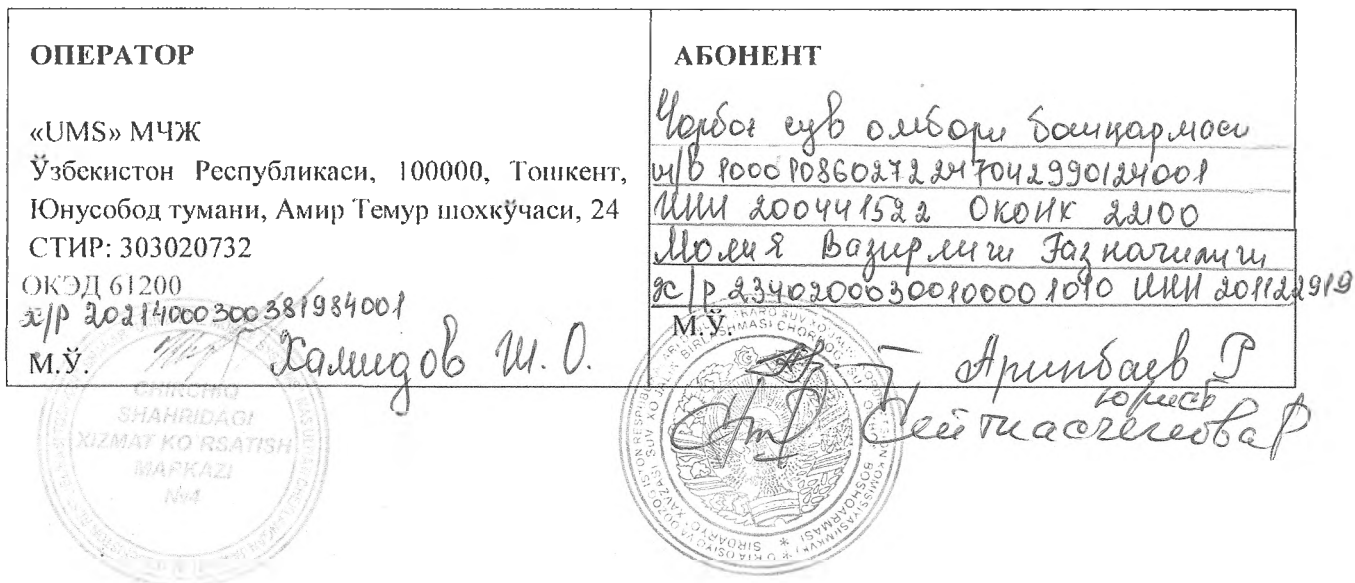 ОПЕРАТОР
«UMS» МЧЖ
Ўзбекистон Республикаси, 100000, Тошкент,
Юнусобод тумани, Амир Темур шохкўчаси, 24
СТИР: 303020732
ОКЭД 61200
х/р 20214000300381984001
М.Ў. Хамидов Ш. О.
CHIRCHIQ
SHAHRIDAGI
XIZMAT KO RSATISH
MARKAZI
№4
АБОНЕНТ
Чорбоғ сув омбори бошқармаси
ш/в 100010860272247042990124001
ИНН 200441522 ОКОНХ 22100
Молия Вазирлиги Ғазначилиги
х/р 23402000300100001010 ИНН 201122919
М.Ў. Аринбаев Р
юрист